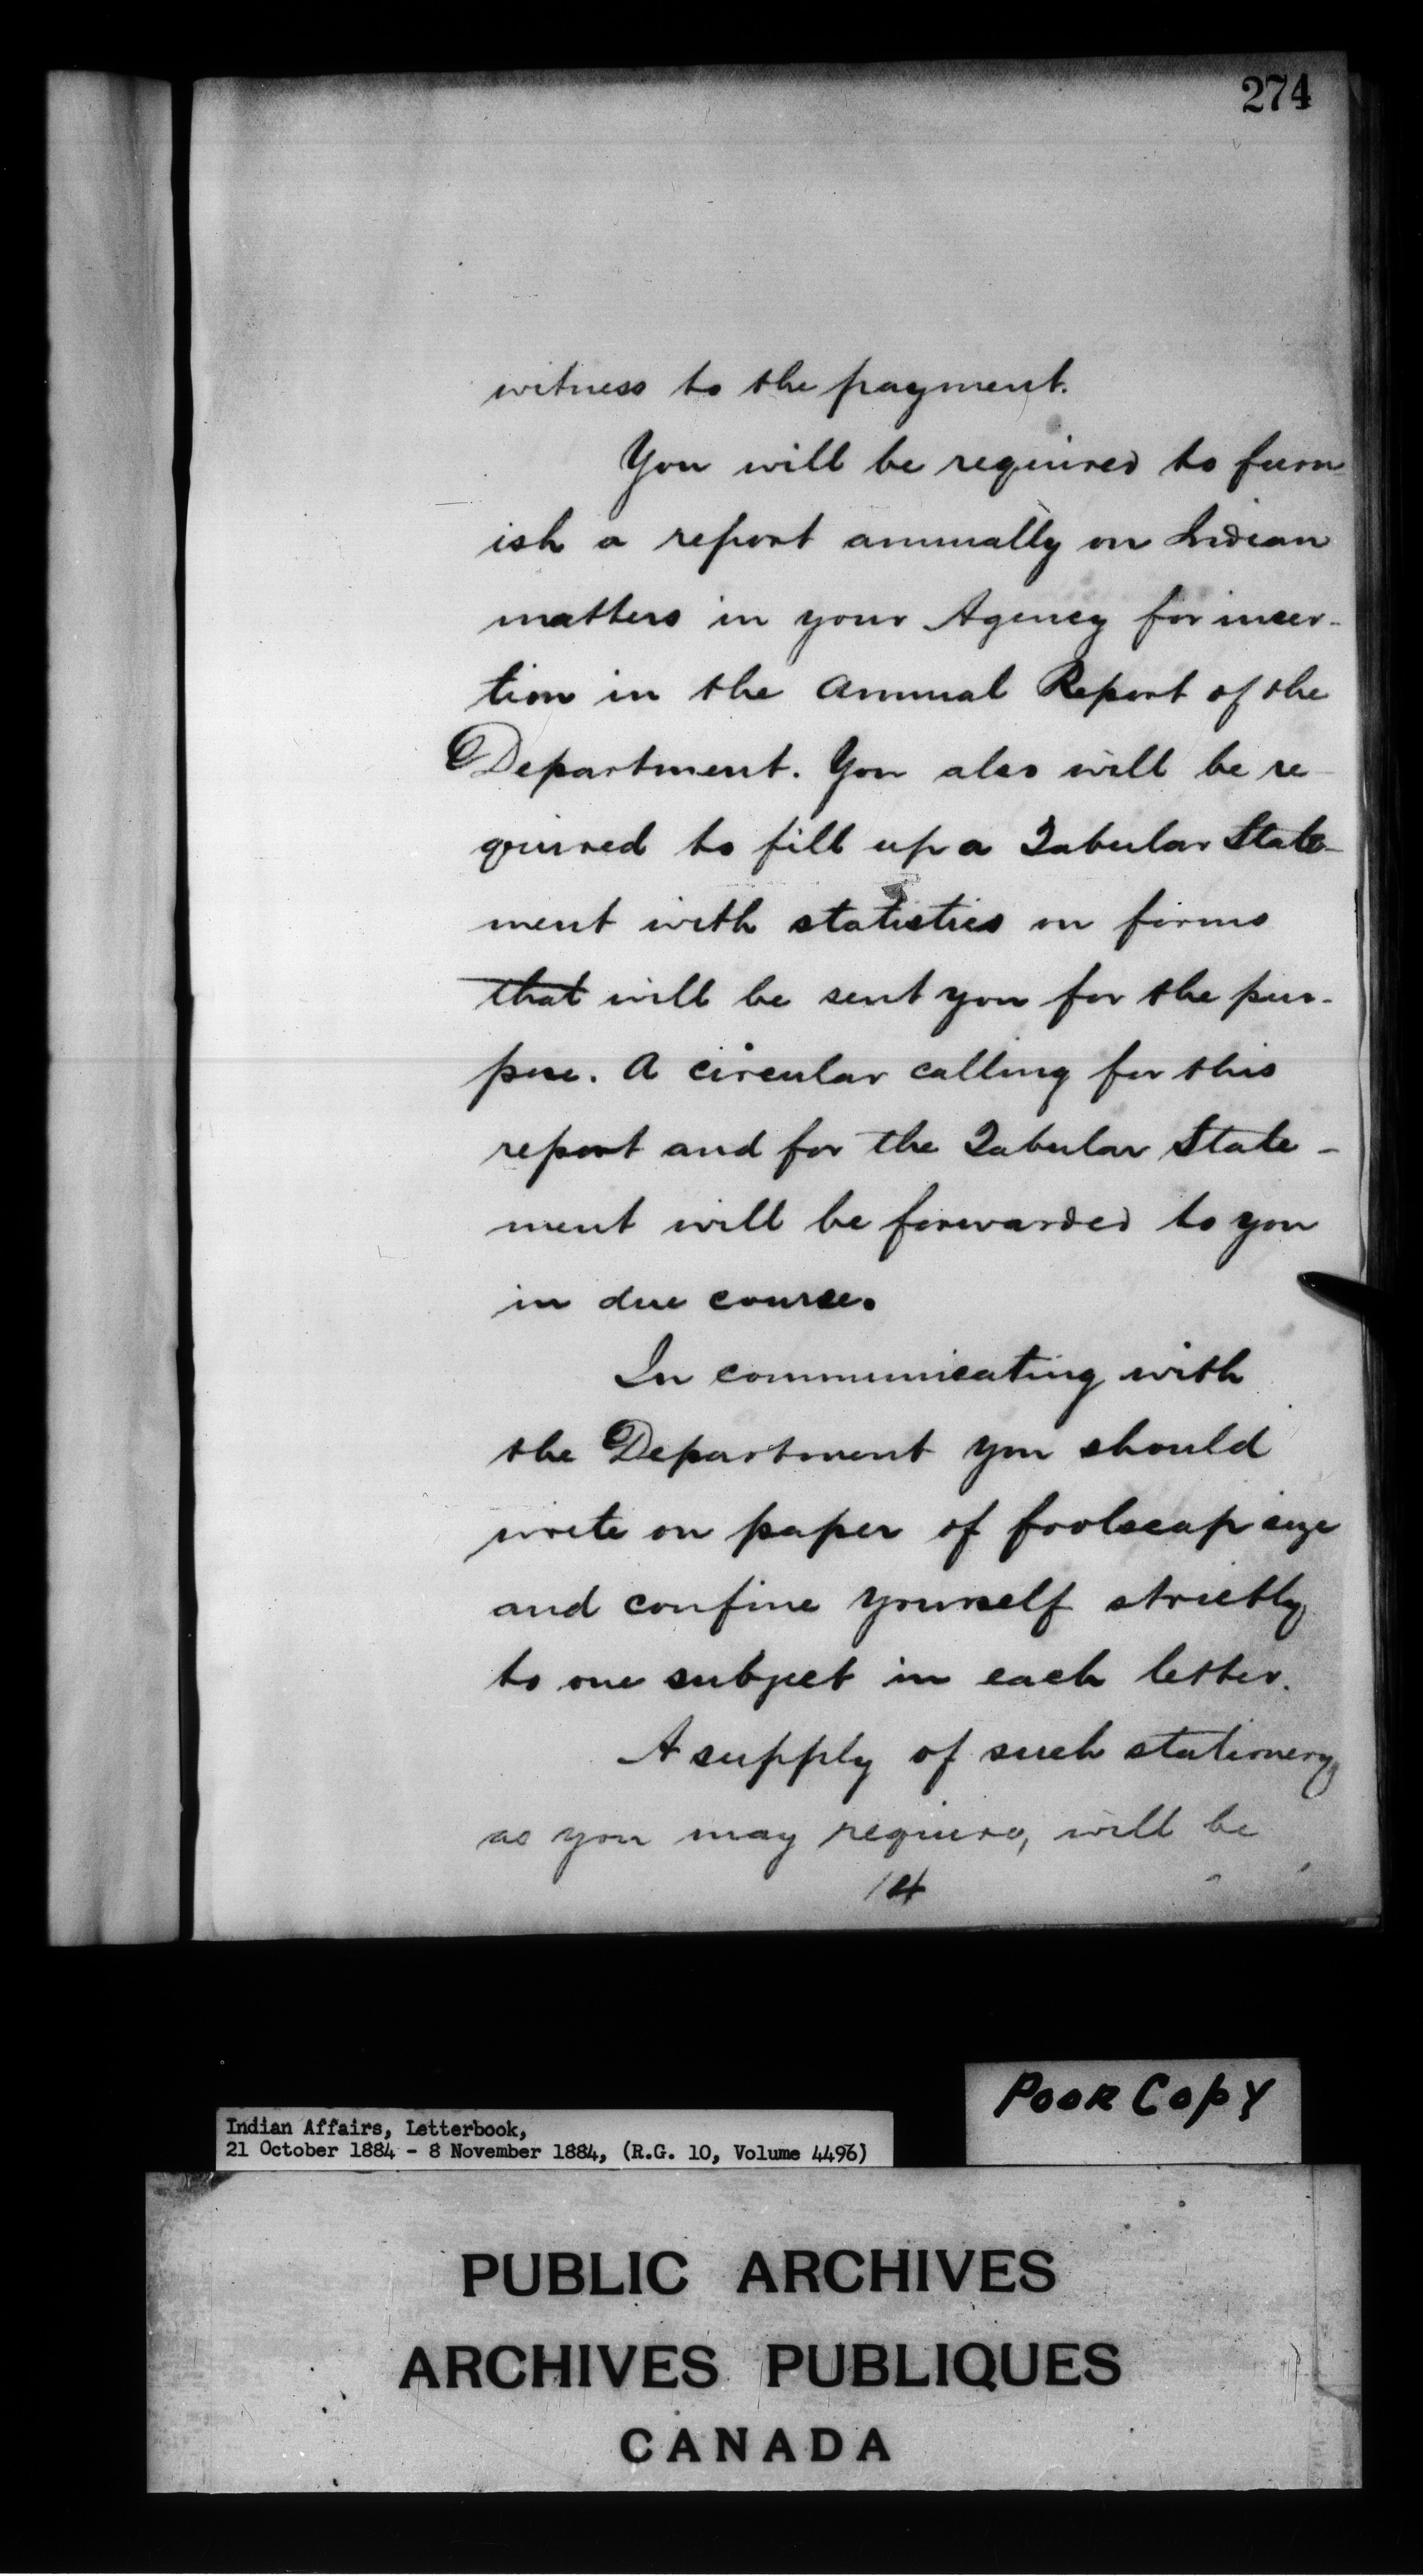 274
witness to the payment.
You will be required to furn
ish a report annually on Indian
matters in your Agency for inser-
tion in the Annual Report of the
Department. You also will be re-
quired to fill up a Tabular State-
ment with statistics on forms
that will be sent you for the pur-
pose. A circular calling for this
report and for the Tabular State-
ment will be forwarded to you
in due course.
In communicating with
the Department you should
write on paper of foolscap size
and confine yourself strictly
to one subject in each letter.
A supply of such stationery
as you may require, will be
14
Poor Copy
Indian Affairs, Letterbook,
21 October 1884 - 8 November 1884, (R.G. 10, Volume 4496)
PUBLIC ARCHIVES
ARCHIVES PUBLIQUES
CANADA